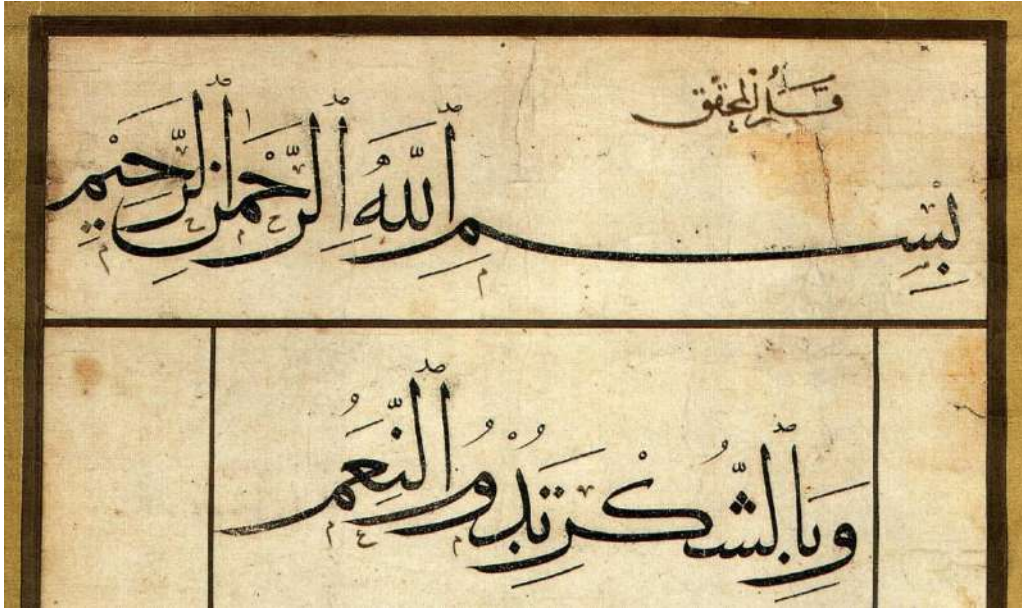 قلم المحقق
بِسْمِ ٱللَّهِ ٱلرَّحْمٰنِ ٱلرَّحِيْمِ
وَبِٱلشُّكْرِ تَدُوْمُ ٱلنِّعَمُ